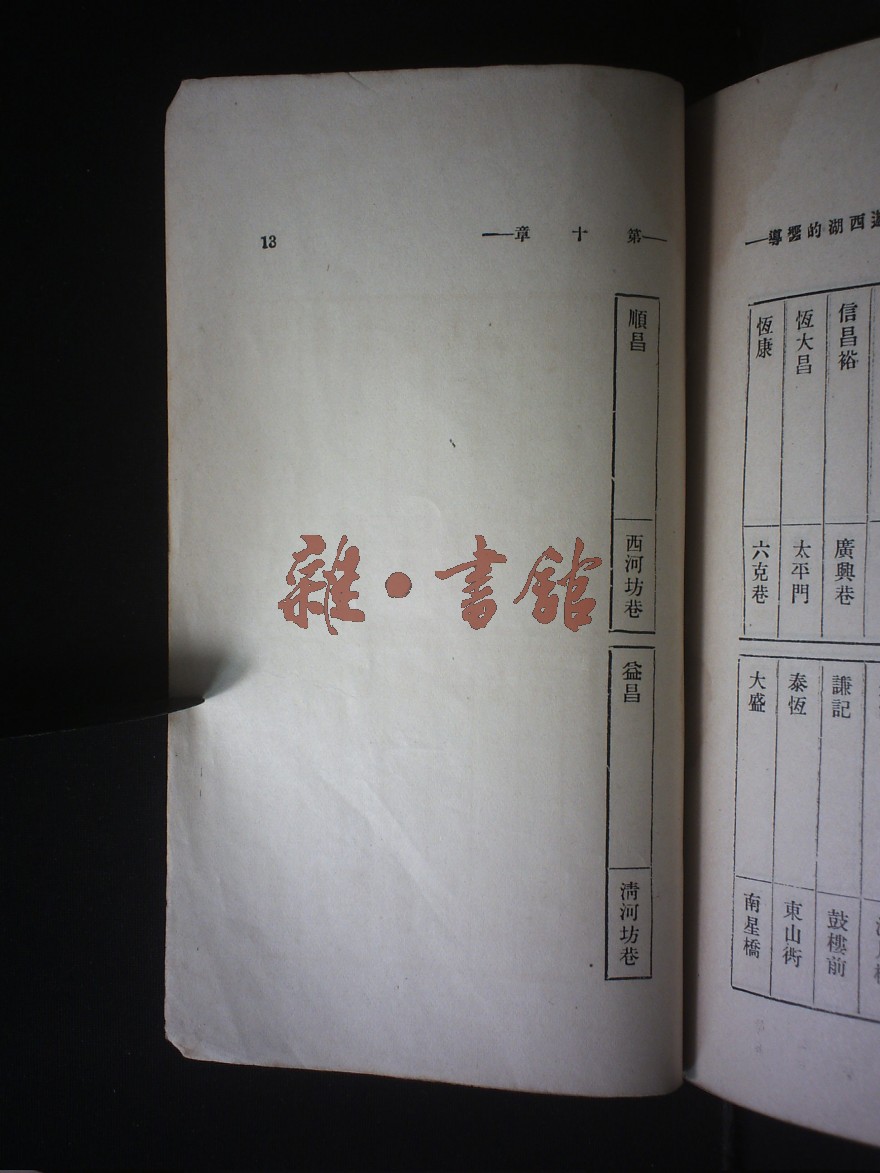 西湖的嚮導
信昌裕
廣興巷
恆大昌
太平門
恆康
六克巷
謙記
鼓樓前
泰恆
東山衖
大盛
南星橋
第十章
13
順昌
西河坊巷
益昌
清河坊巷
雜·書館